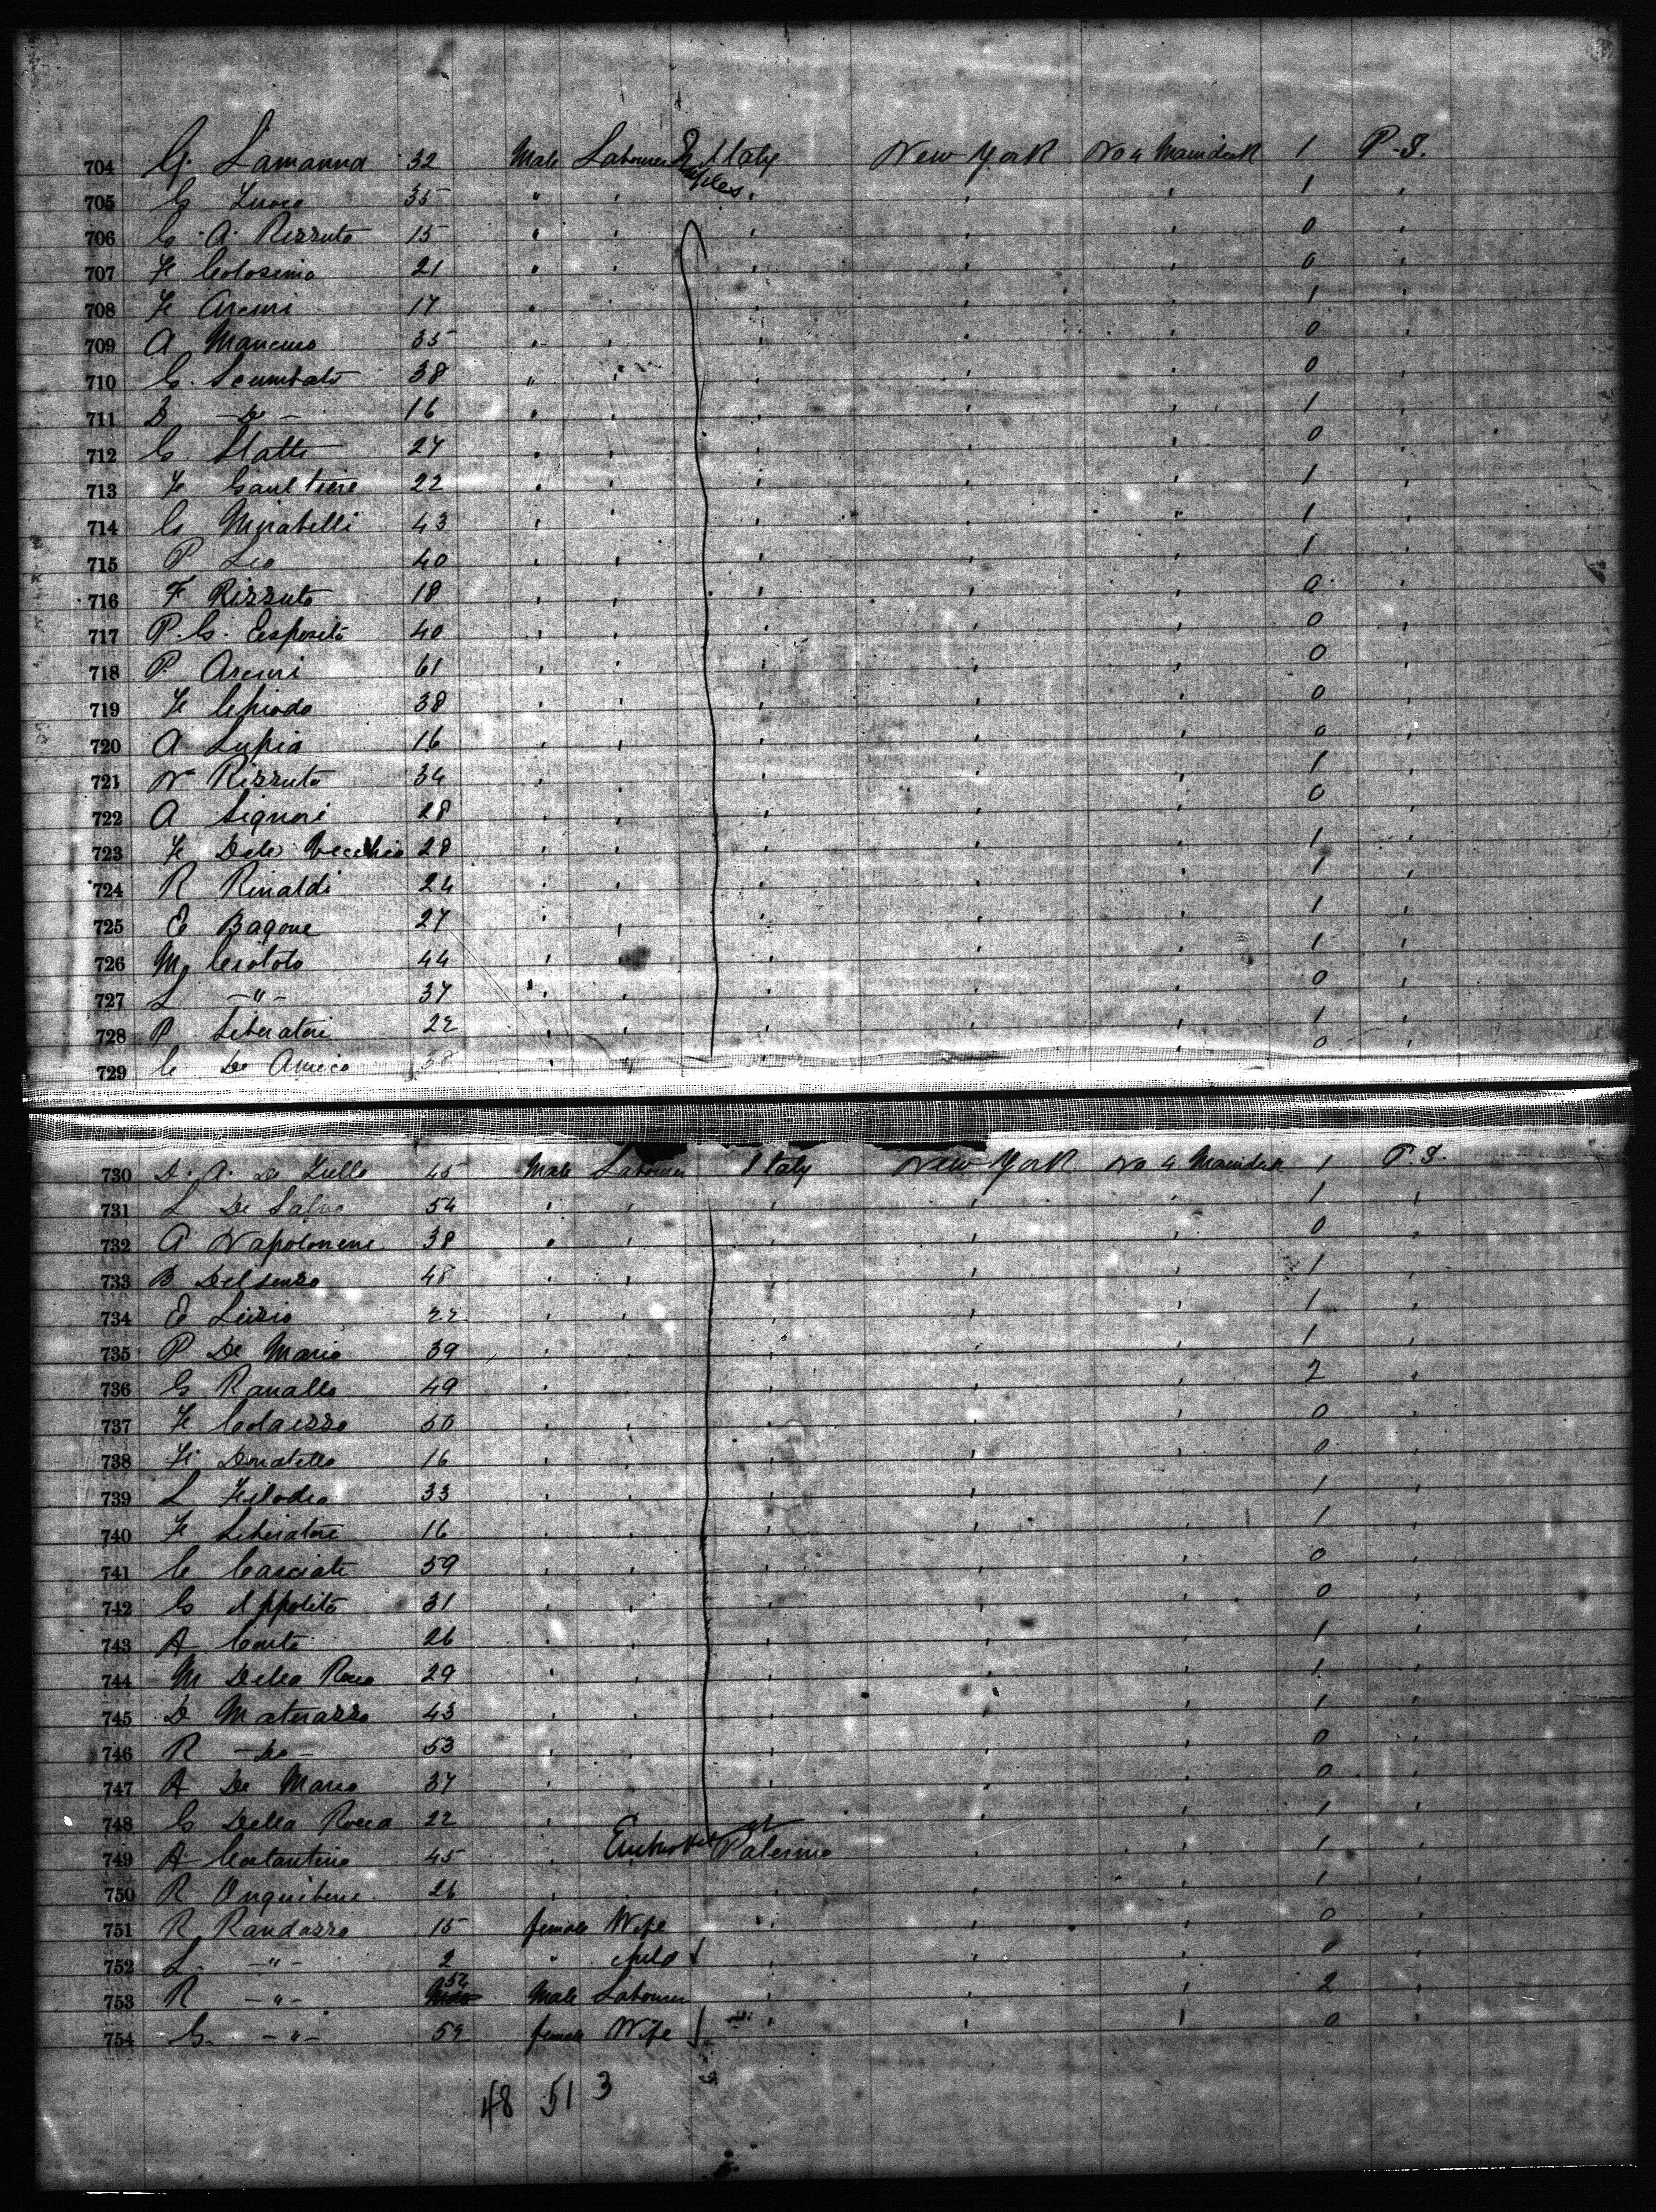 704 G. Lamanna 32 Male Labourer Naples Italy New York No 4 Maindeck 1 P.S.
705 G 35 " ' ' ' ' 1 '
706 G. A. Rizzuto 15 " ' ' ' ' 0 '
707 F Colosimo 21 " ' ' ' ' 0 '
708 F Arcuri 17 " ' ' ' ' 1 '
709 A Mancuso 35 " ' ' ' ' 0 '
710 G. Scumbato 38 " ' ' ' ' 0 '
711 D - Do - 16 " ' ' ' ' 1 '
712 G. Statti 27 " ' ' ' ' 0 '
713 F Gaultiere 22 ' ' ' ' ' 1 '
714 G Mirabelli 43 ' ' ' ' " 1 '
715 P Leo 40 ' ' ' ' ' 1 '
716 F Rizzuto 18 ' ' ' ' ' 0 '
717 P. G. Esposito 40 ' ' ' ' ' 0 '
718 P Arcuri 61 ' ' ' ' ' 0 '
719 F 38 ' ' ' ' ' 0 '
720 A Lupia 16 ' ' ' ' ' 0 '
721 N Rizzuto 34 ' ' ' ' ' 1 '
722 A Signori 28 ' ' ' ' ' 0 '
723 F Del Vecchio 28 ' ' ' ' ' 1 '
724 R Rinaldi 24 ' ' ' ' ' 1 '
725 E Bagone 27 ' ' ' ' ' 1 '
726 M 44 ' ' ' ' ' 1 '
727 L - " - 37 ' ' ' ' ' 0 '
728 P Liberatori 22 ' ' ' ' ' 1 '
729 C De Amico 38 ' " ' ' 0
730 D. A. De Lullo 45 Male Labourer Italy New York No 4 Maindeck 1 P.S.
731 L De Salvo 54 ' ' ' ' ' 1 '
732 A Napolonene 38 ' ' ' ' ' 0 '
733 B Delsenso 48 ' ' ' ' ' 1 '
734 E Luzio 22 ' ' ' ' ' 1 '
735 P De Mario 39 ' ' ' ' ' 1 '
736 G Ranallo 49 ' ' ' ' ' 2 '
737 F Colaezzo 50 ' ' ' ' ' 0 '
738 F Donatello 16 ' ' ' ' ' 0 '
739 L 33 ' ' ' ' ' 1 '
740 F Liberatore 16 ' ' ' ' ' 1 '
741 C Casciato 59 ' ' ' ' ' 0 '
742 G Ippolito 31 ' ' ' ' ' 0 '
743 A Conte 26 ' ' ' ' ' 1 '
744 M Della Rocca 29 ' ' ' ' ' 1 '
745 D Materazzo 43 ' ' ' ' ' 1 '
746 R - Do - 53 ' ' ' ' ' 0 '
747 A De Marco 37 ' ' ' ' ' 0 '
748 G Della Rocca 22 ' ' ' 1 '
749 A Costantino 45 ' Embarked at Palermo ' ' 1 '
750 R 26 ' ' ' ' ' 1 '
751 R Randazzo 15 female Wife ' ' ' 0 '
752 L. - " - 2 " child ' ' ' 0 '
753 R - " - 52 Male Labourer ' ' ' 2 '
754 G. - " - 52 female Wife ' ' ' 0 '
48 51 3